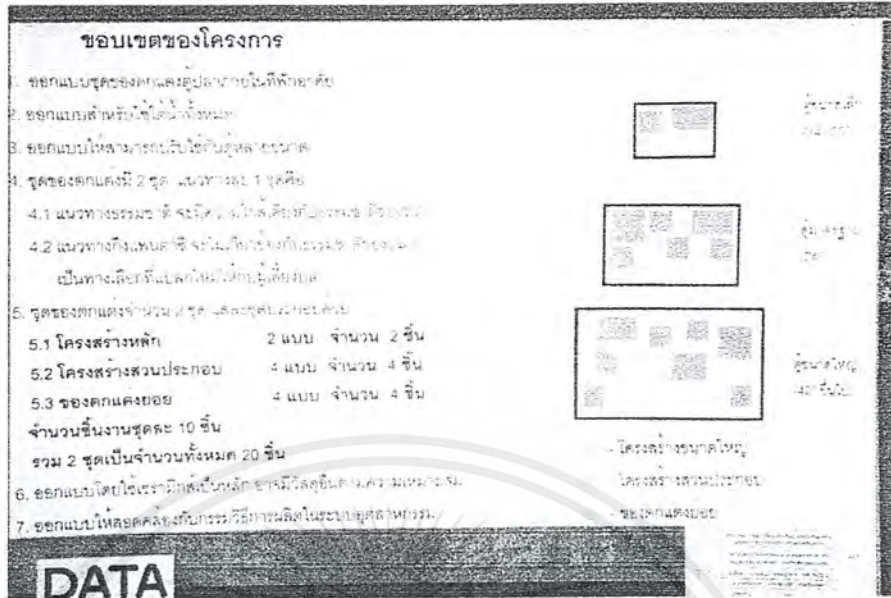 ขอบเขตของโครงการ
1. ออกแบบชุดของตกแต่งตู้ปลาภายในที่พักอาศัย
2. ออกแบบสำหรับใช้ใต้น้ำทั้งหมด
3. ออกแบบให้สามารถปรับใช้กับตู้หลายขนาด
4. ชุดของตกแต่งมี 2 ชุด แนวทางละ 1 ชุดคือ
4.1 แนวทางธรรมชาติ จะมีความใกล้เคียงกับธรรมชาติ
4.2 แนวทางกึ่งแฟนตาซี
เป็นทางเลือกที่แปลกใหม่ให้กับผู้เลี้ยงปลา
5. ชุดของตกแต่งจำนวน 2 ชุด แต่ละชุดประกอบด้วย
5.1 โครงสร้างหลัก 2 แบบ จำนวน 2 ชิ้น
5.2 โครงสร้างส่วนประกอบ 4 แบบ จำนวน 4 ชิ้น
5.3 ของตกแต่งย่อย 4 แบบ จำนวน 4 ชิ้น
จำนวนชิ้นงานชุดละ 10 ชิ้น
รวม 2 ชุดเป็นจำนวนทั้งหมด 20 ชิ้น
6. ออกแบบโดยใช้เซรามิกส์เป็นหลัก อาจมีวัสดุอื่นตามความเหมาะสม
7. ออกแบบให้สอดคล้องกับกรรมวิธีการผลิตในระบบอุตสาหกรรม
ตู้ขนาดเล็ก
ตู้มาตรฐาน
ตู้ขนาดใหญ่
- โครงสร้างขนาดใหญ่
โครงสร้างส่วนประกอบ
- ของตกแต่งย่อย
DATA